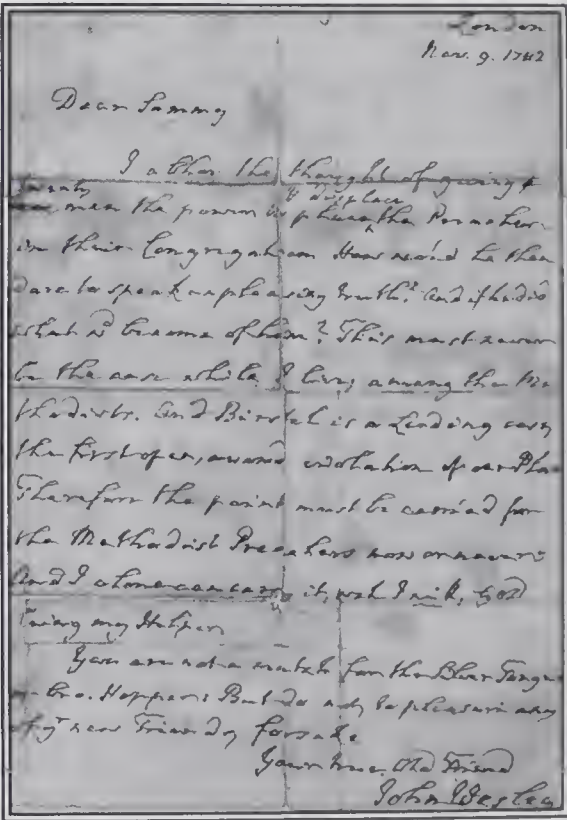 London
Nov. 9. 1782
Dear Sammy
I abhor the thought of giving to
twenty
men the power to place
& displace
the Preachers
in their Congregations How wou'd he then
dare to speak unpleasing truth? And if he did
what wd become of him? This must never
be the case while I live, among the Me
thodists. And Birstal is a Leading case,
the first of an, avowed violation of our Plan
Therefore the point must be carried for
the Methodist Preachers now or never:
And I alone can carry it, wch I will, God
being my Helper
You are not a match for the Silver Tongue
Bro. Hopper: But do not, to pleasure any
of yr new Friends, forsake
Your true Old Friend
John Wesley